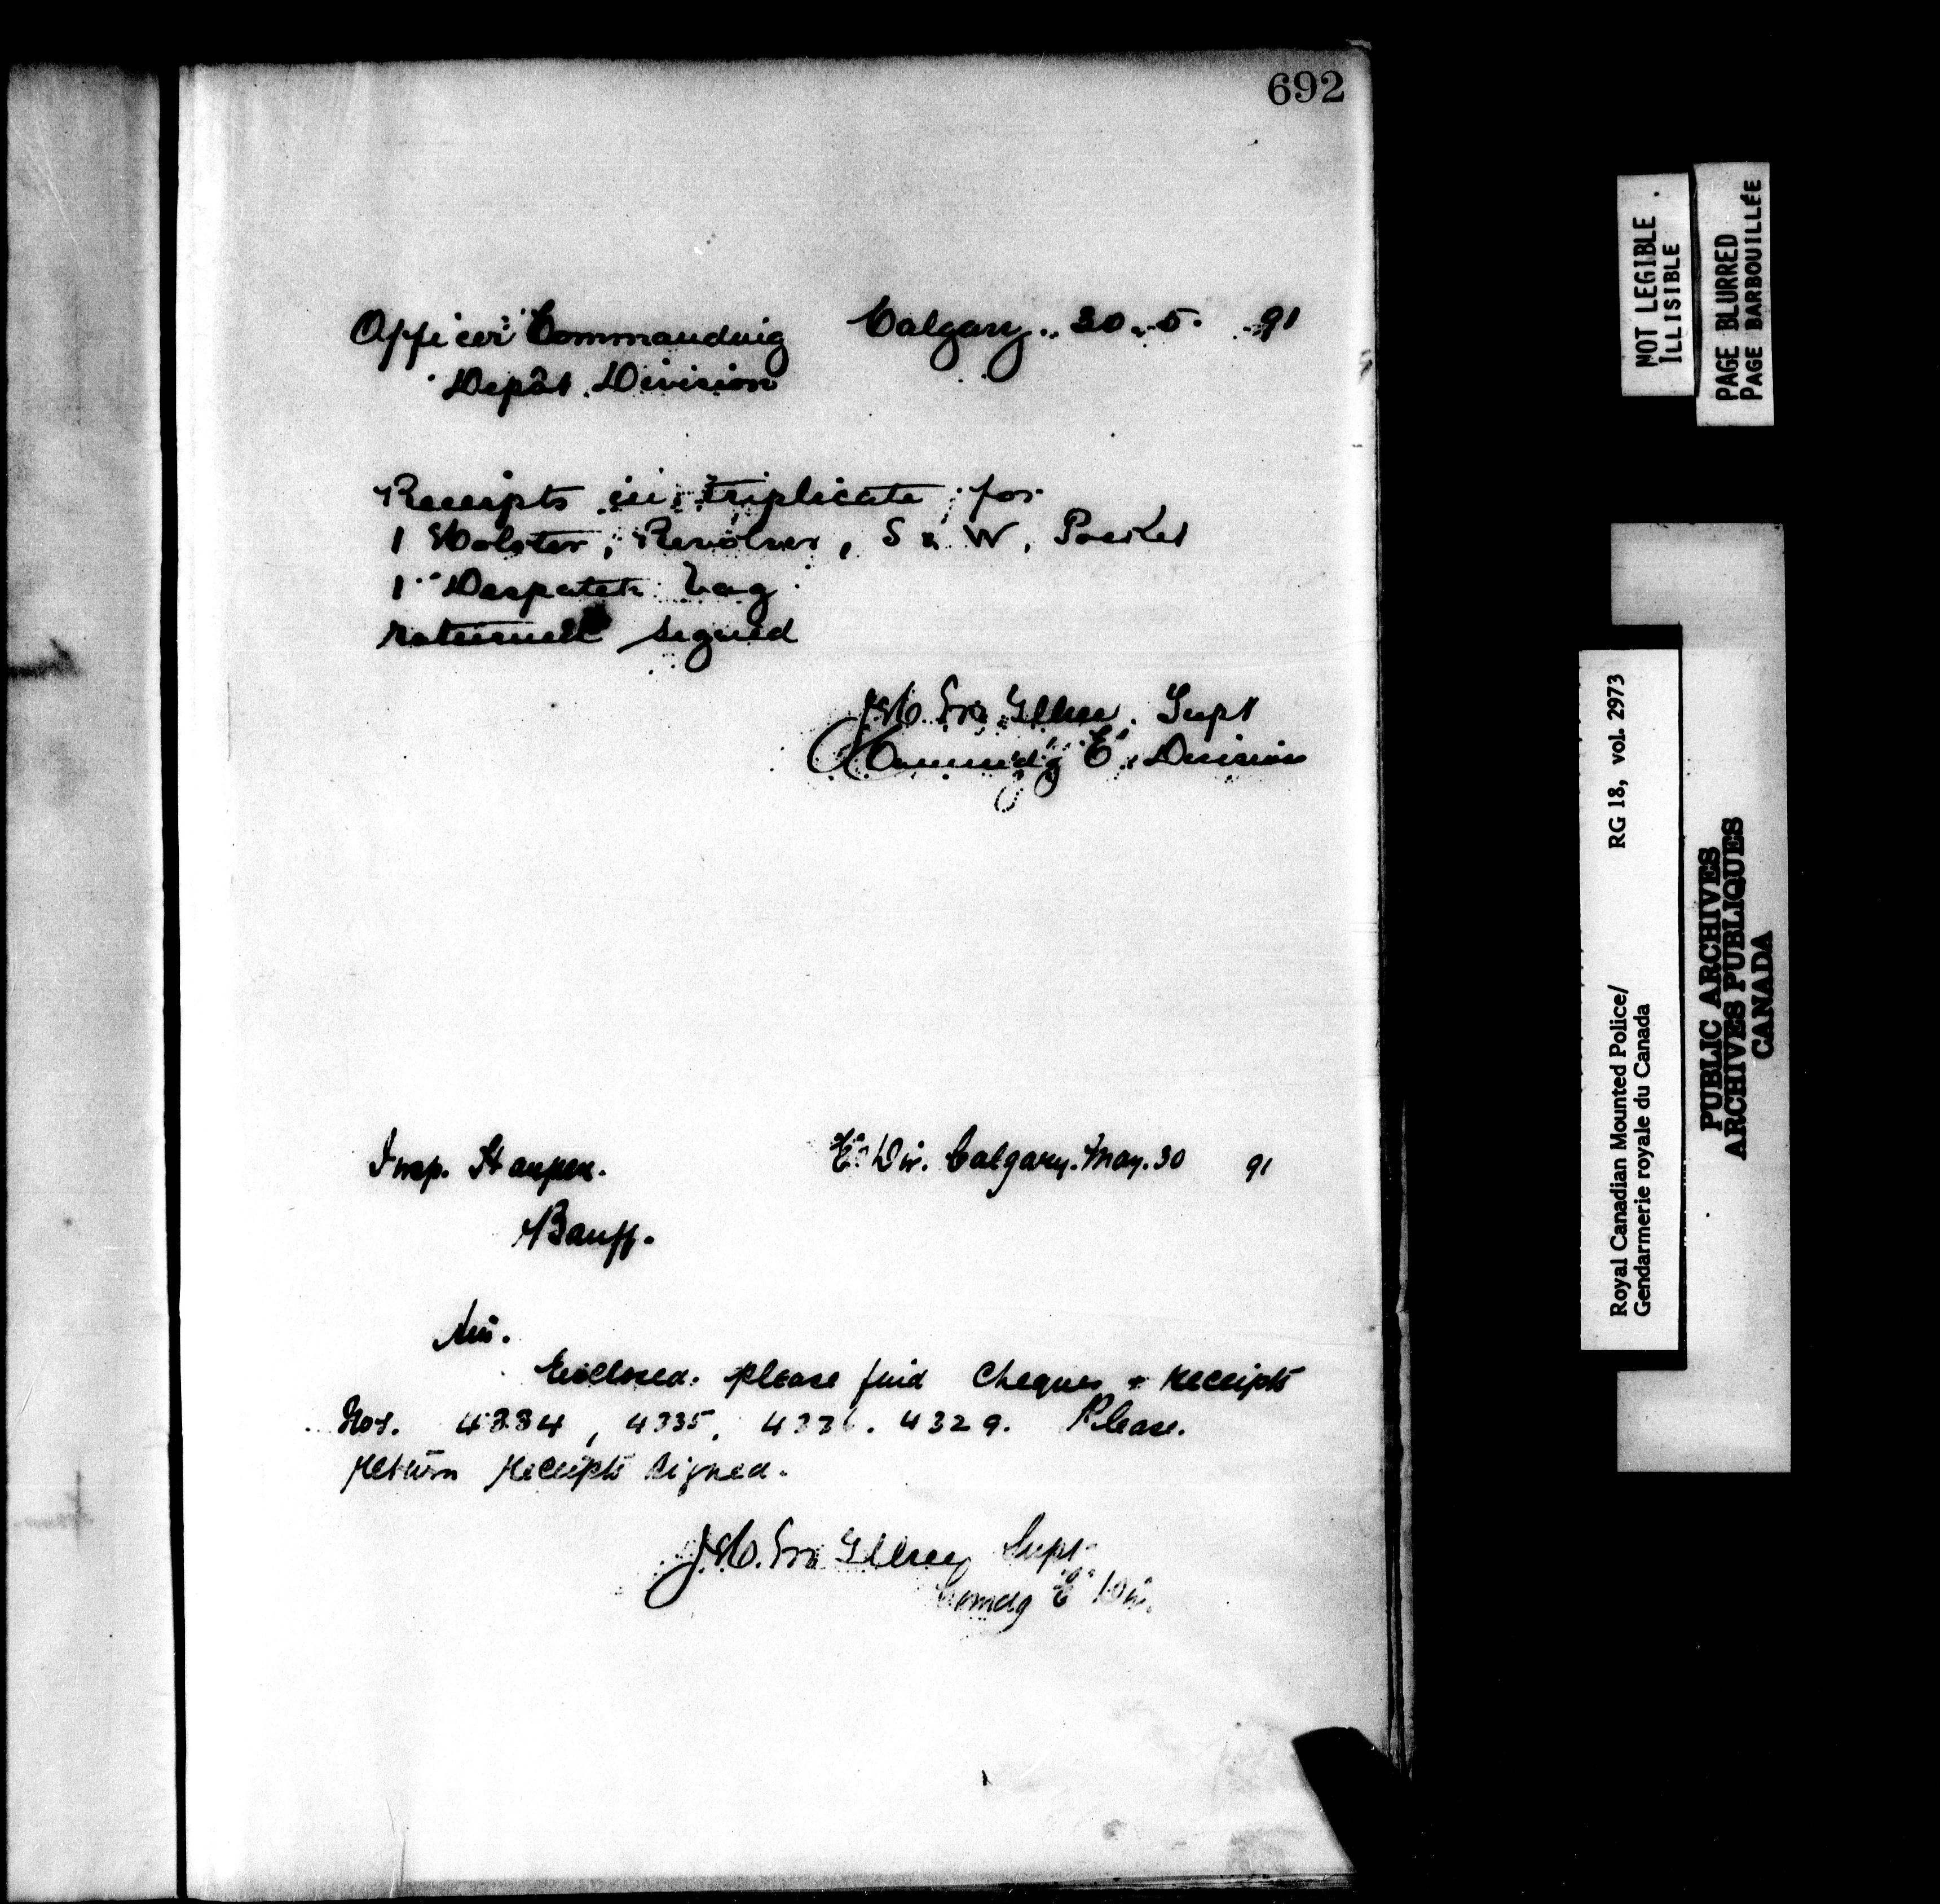 692
Officer Commanding Calgary. 30. 5. 91
Depôt Division
Receipts in triplicate for
1 Holster, Revolver, S & W, Pocket
1 Despatch bag
returned signed
J.H. McIllree. Supt
Commd'g "E" Division
Insp. Harper. "E" Div. Calgary. May. 30 91
Banff.
Sir.
Enclosed. please find Cheques & Receipts
Nos. 4334, 4335, 4336. 4329. Please.
Return Receipts signed.
J.H. McIllree Supt
Comdg "E" Div.
NOT LEGIBLE
ILLISIBLE
PAGE BLURRED
PAGE BARBOUILLÉE
Royal Canadian Mounted Police/ RG 18, vol. 2973
Gendarmerie royale du Canada
PUBLIC ARCHIVES
ARCHIVES PUBLIQUES
CANADA